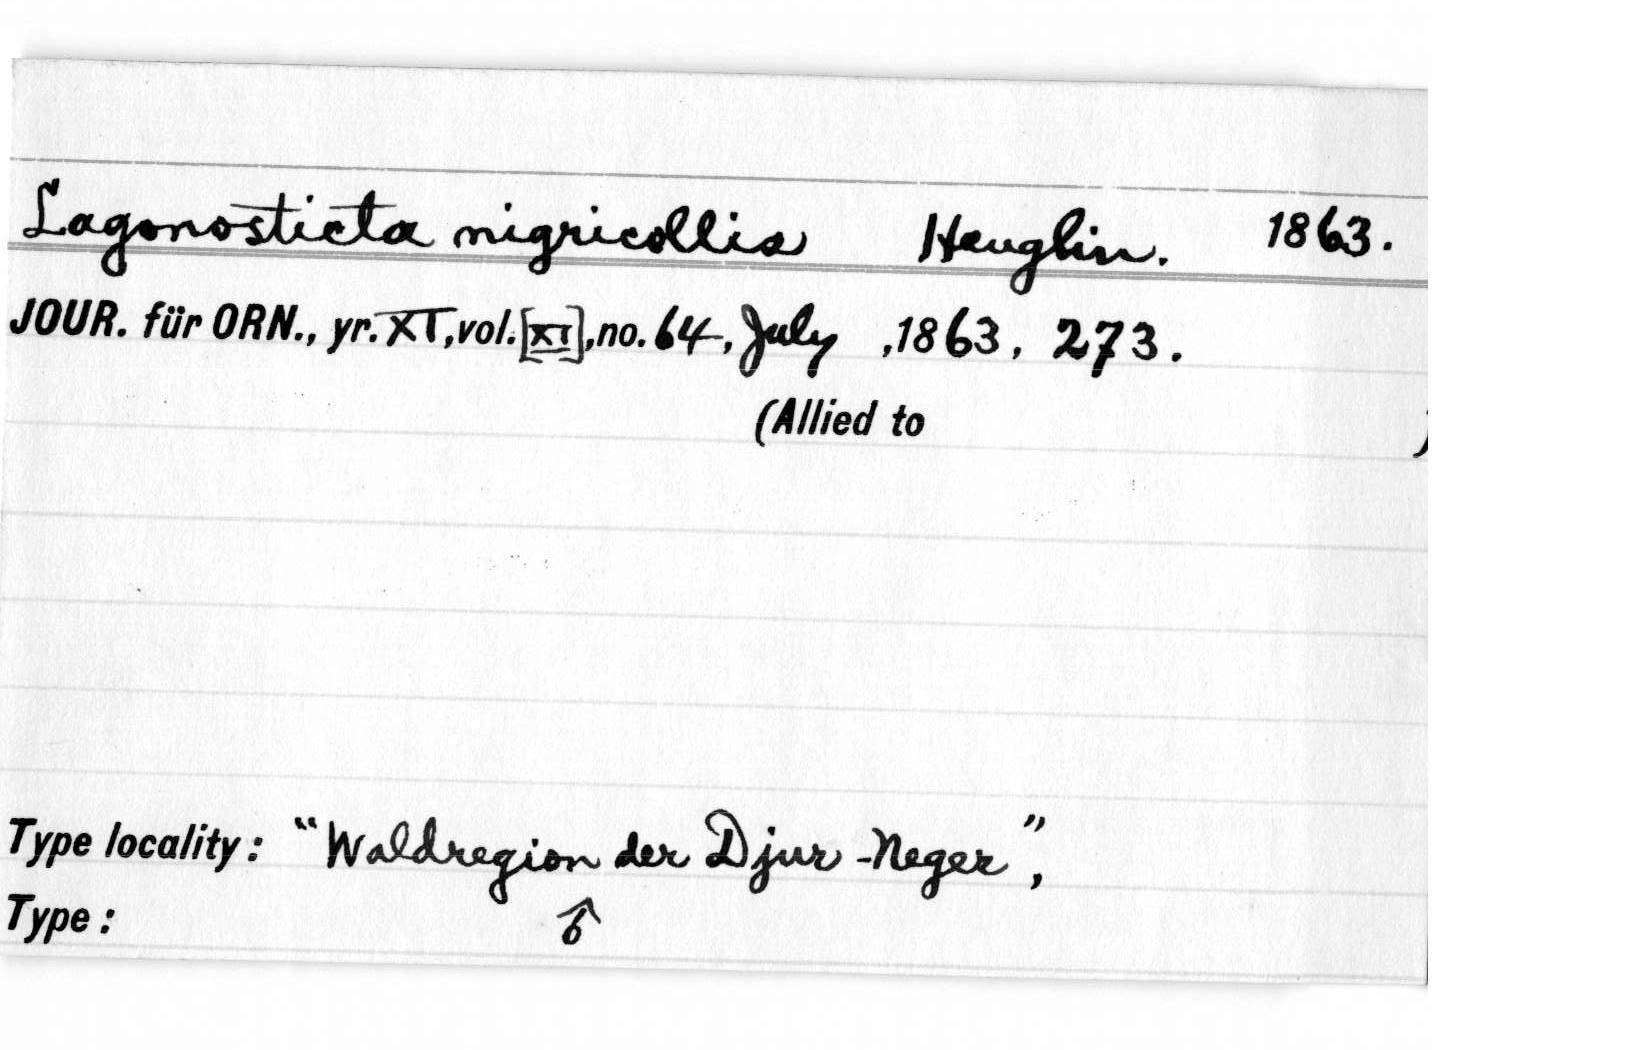 Lagonosticta nigricollis Heuglin. 1863.
JOUR. für ORN., yr. XI, vol. [XI], no. 64, July ,1863, 273.
(Allied to )
Type locality: "Waldregion der Djur-Neger",
Type: ♂